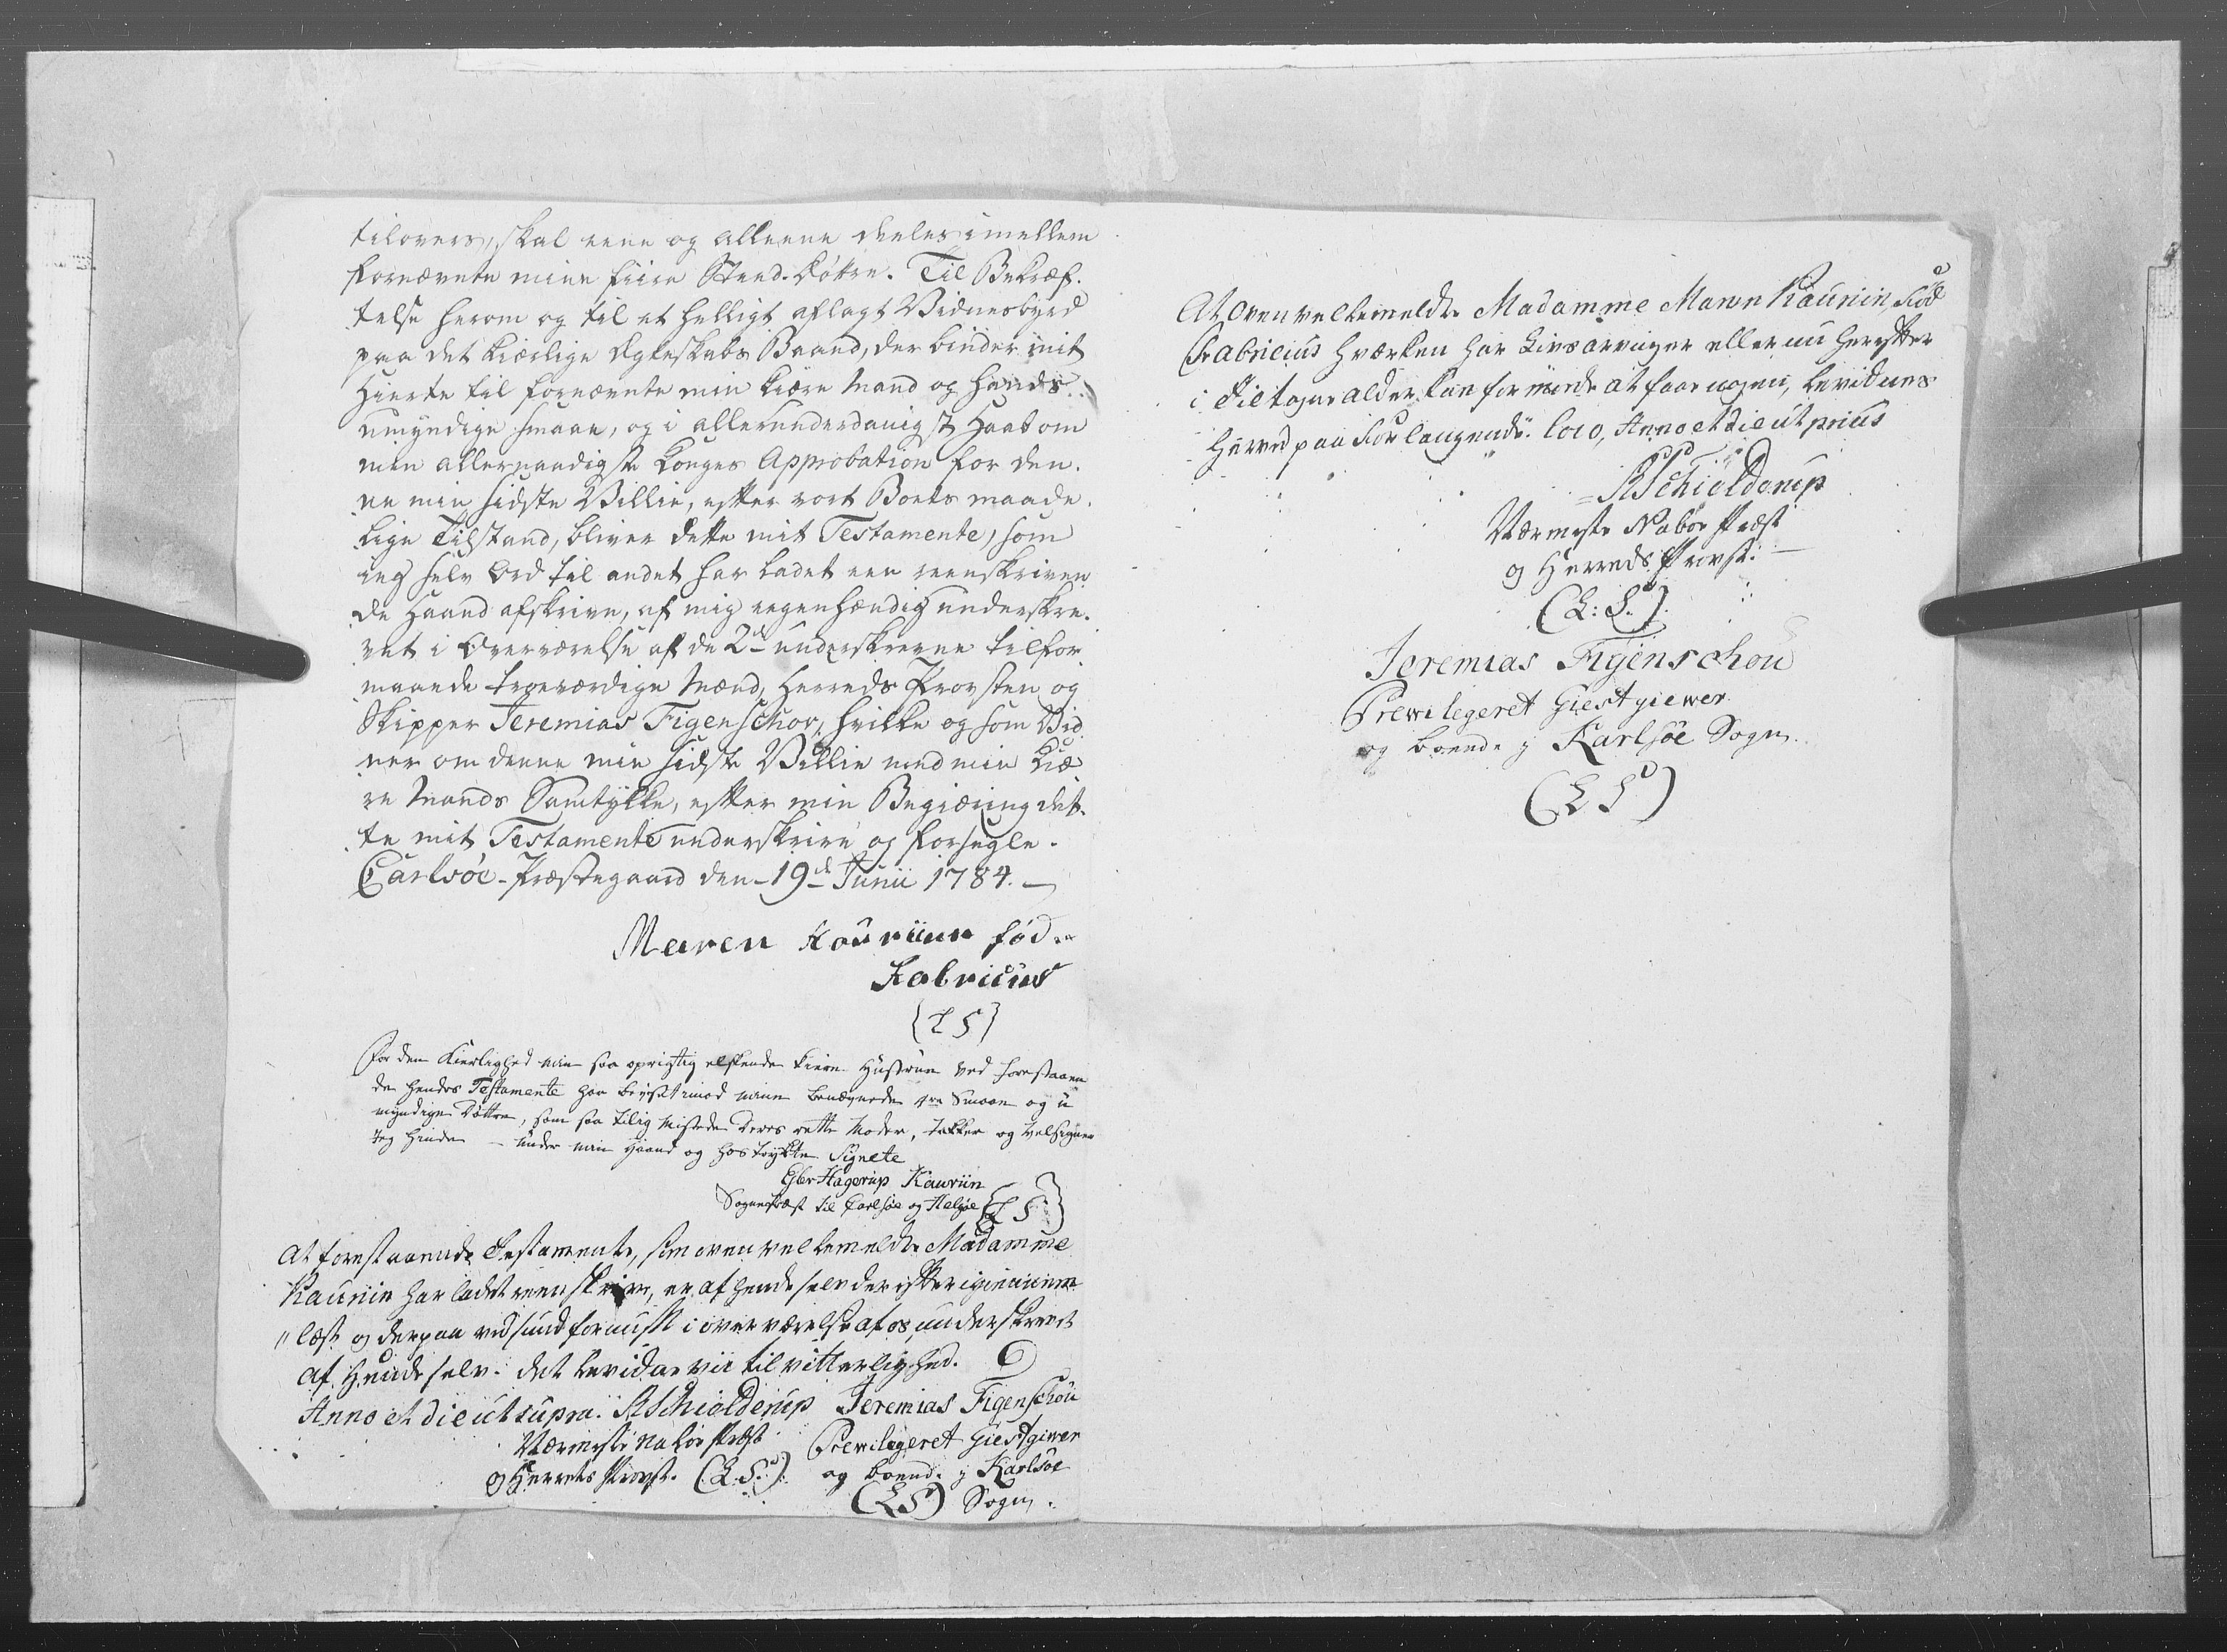 tilovers, skal eene og alleene deeles imellem
fornævnte mine fiire Steed-Døttre. Til Bekræf-
telse herom og til et helligt aflagt Vidnesbyrd
paa det kiærlige Ægteskabs Baand, der binder mit
Hierte til fornævnte min kiære Mand og hands
umyndige smaae, og i allerunderdanigst Haab om
min allernaadigste Konges Approbation for den-
ne min sidste Villie, efter vort Boets maade-
lige Tilstand, bliver dette mit Testamente, som
ieg selv Ord til andet har ladet een reenskriven-
de Haand afskrive, af mig egenhændig underskre-
vet i Overværelse af de 2de underskrevne tilfor-
maaende troeværdige Mænd, Herreds Provsten og
Skipper Jeremias Figenschov, hvilke og som Vid-
ner om denne min sidste Villie med min kiæ-
re Mands Samtykke, efter min Begiæring det-
te mit Testamente underskrive og forsegle.
Carlsöe-Præstegaard den 19de Junii 1784.
Maren Kauriinn fød
Fabricius
{L S}
For den Kierlighed min saa oprigtig elskende kiere Hustrue ved forestaaen
de hendes Testamente har beviist imod mine benævnede smaae og u
myndige Døttre, som saa tilig mistede Deres rette Moder, takker og Velsigner
Jeg hende under min Haand og hostrykte Signete
Hagerup Kauriin
Sognepræst til Carlsöe og Helgöe {L S}
At forestaaende Testamente, som ovenvelbemeldte Madamme
Kaurin har ladet reenskrive, er af hende selv derefter igiennem-
"læst og derpaa ved sund fornuft i overværelse af os underskrevet
af Hende selv. det bevidner vii til vitterlighed.
Anno et die ut supra. Schielderup Jeremias Figenschou
Nærmeste Naboe Præst Prewilegeret Giestgiwer
og Herreds Provst. (L.S.) og boende j Karlsöe
(L S) Sogn.
At ovenvelbemeldte Madamme Maren Kaurin, fød
Fabricius hværken har Livsarvinger eller nu herefter
i tiltagne alder kan formode at faae nogen, bevidnes
herved paa forlangende. Loco, Anno et die ut prius
Schielderup
Nærmeste Naboe Præst
og Herreds Provst.
(L: S.)
Jeremias Figenschou
Prewilegeret Giestgiewer
og boende j Karlsöe Sogn.
(L S)